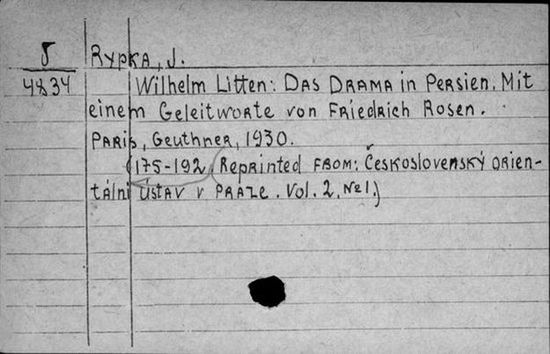 5 Rypka, J.
4834 Wilhelm Litten: Das Drama in Persien. Mit
einem Geleitworte von Friedrich Rosen.
Paris, Geuthner, 1930.
(175-192 (Reprinted from: Československý orien-
tální ústav v Praze. Vol. 2, № 1.)